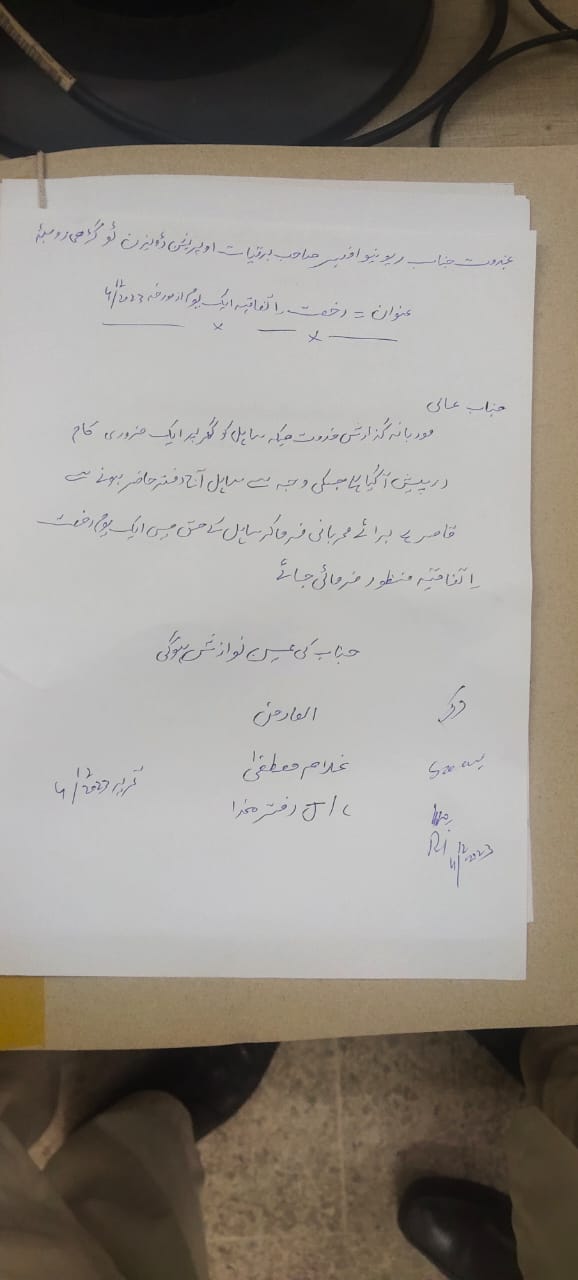 بخدمت جناب ریونیو آفیسر صاحب برقیات اوپریشن ڈویژن گڑھی دوپٹہ
عنوان = رخصت اتفاقیہ ایک یوم از مورخہ 4/12/2023
جناب عالی
مودبانہ گزارش خدمت ہیکہ سایل کو گھر پر ایک ضروری کام
درپیش آ گیا ہے جسکی وجہ سے سایل آج دفتر حاضر ہونے سے
قاصر ہے برائے مہربانی فرما کر سایل کے حق میں ایک یوم رخصت
اتفاقیہ منظور فرمائی جائے
جناب کی عین نوازش ہوگی
العارض
غلام مصطفیٰ
تحریر 4/12/2023
J/C دفتر ھذا
RI
4/12/2023